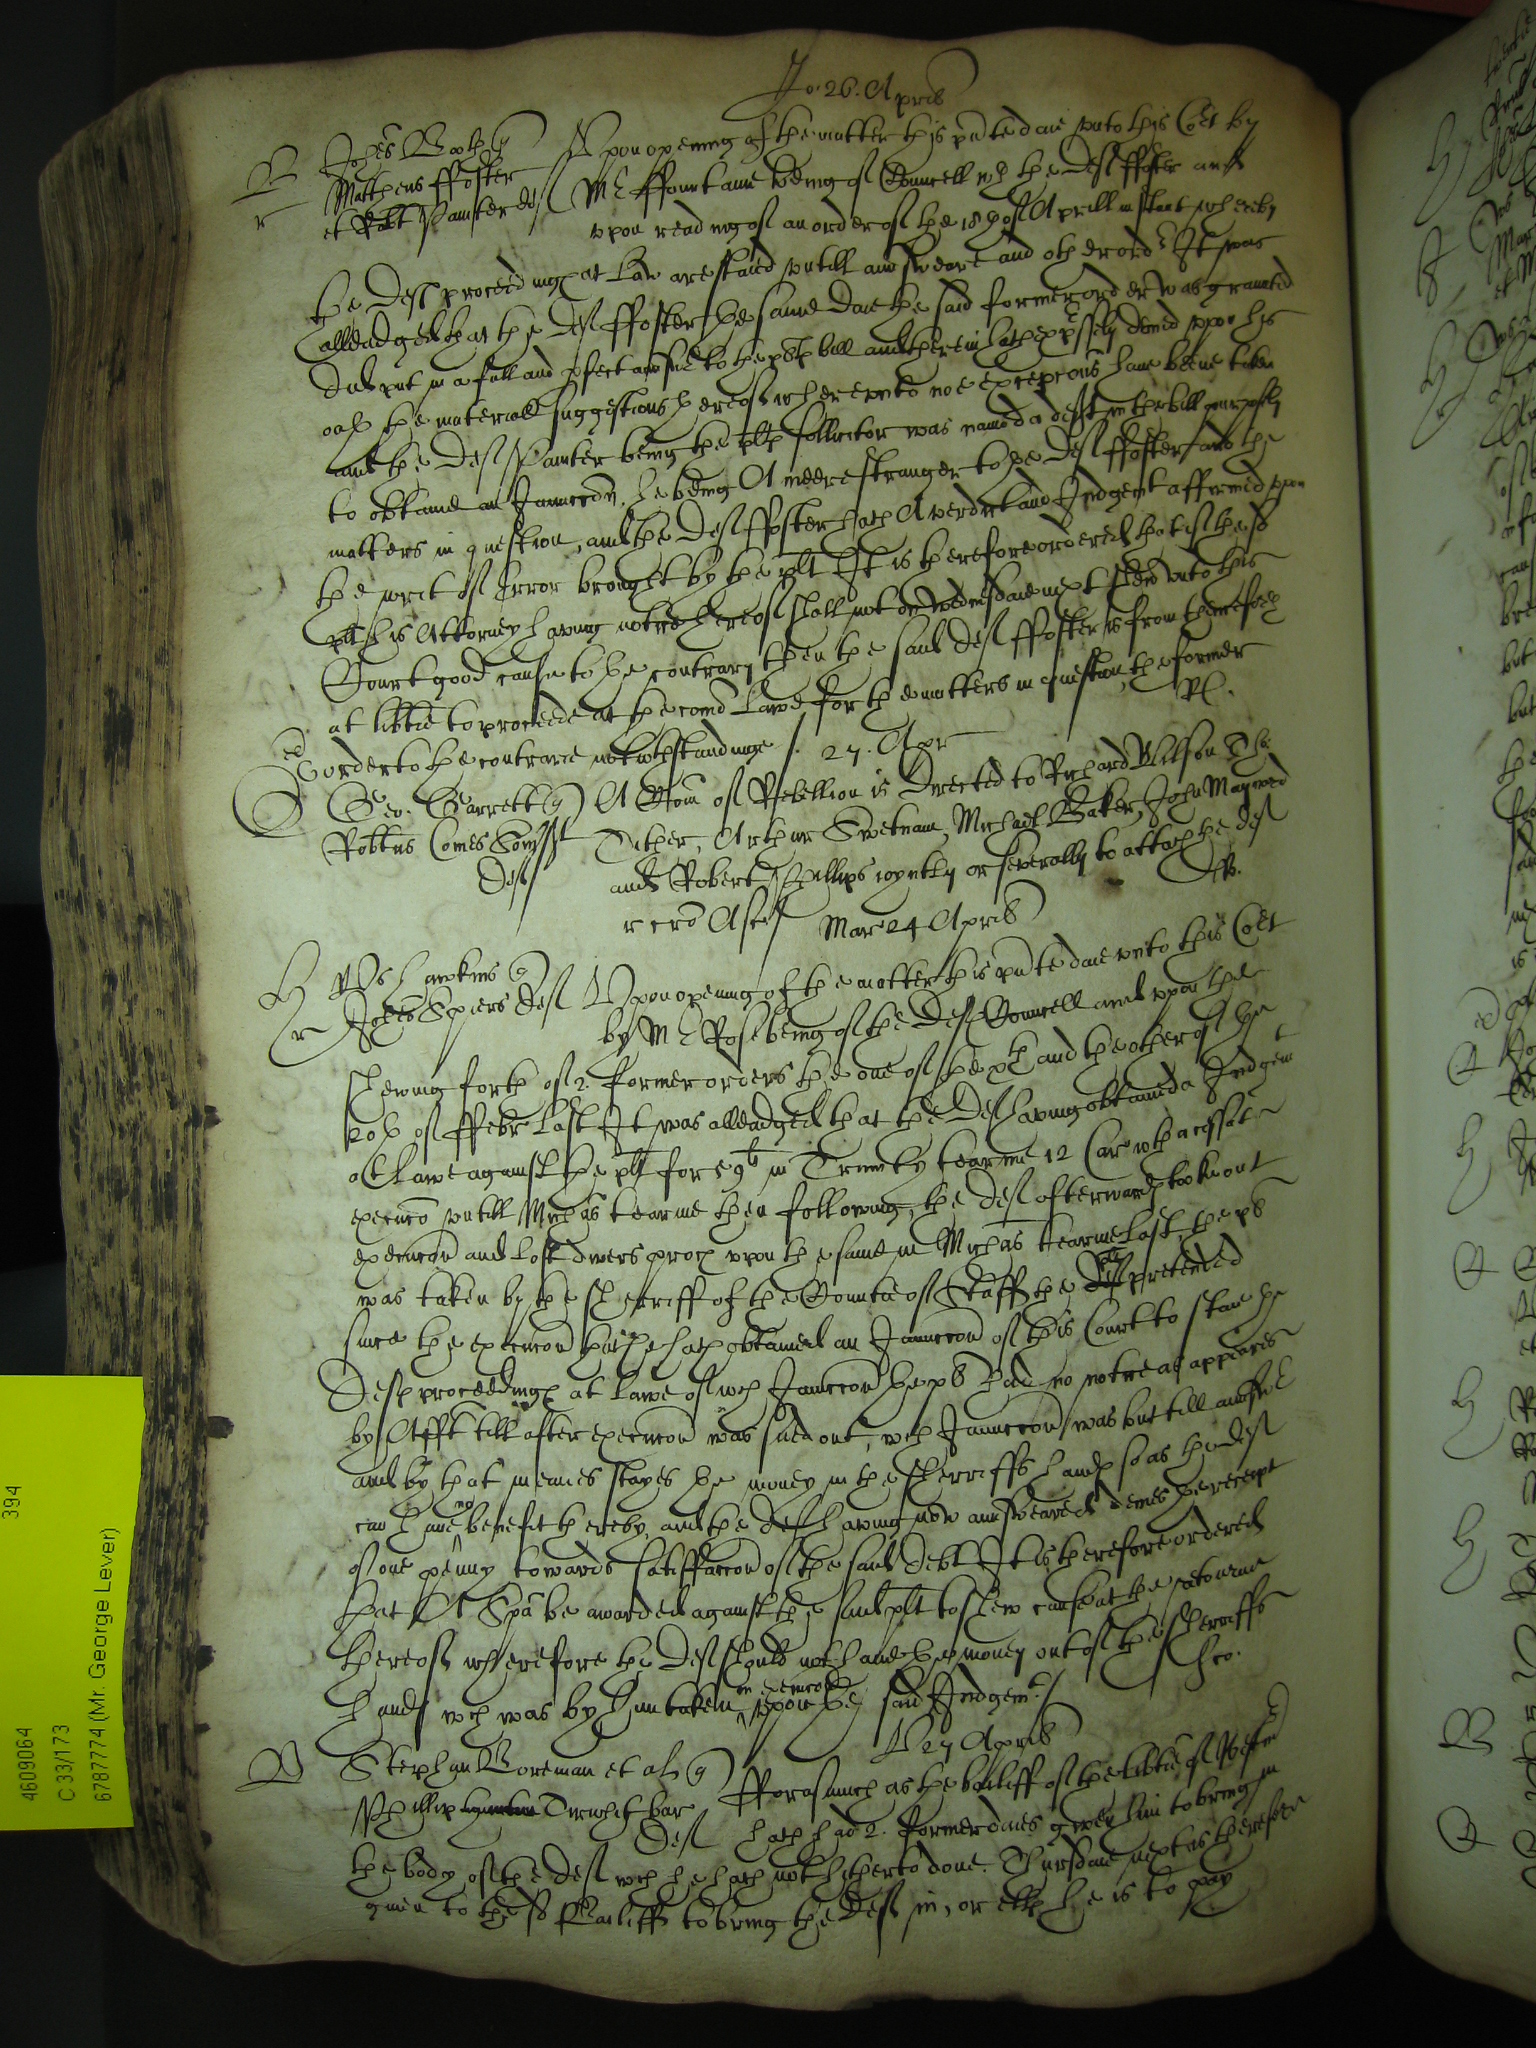 Jo. 26. Aprilis
B
r
Johes Booth q
Matheus ffoster
et Robt Painter def
Upon opening of the matter this pnte daie unto this Cort by
Mr ffountaine being of Councell wth the Def ffoster and
upon reading of an order of the 18th of Aprill instant whereby
the Defts proceedings at Law are staied untill answeare and other order It was
alleadged that the Def ffoster the same daie the said former order was graunted
did put in a full and pfect answere to the plts bill and therein hath expressely denied upon his
oath the materiall suggestions thereof whereunto noe excepcons have beene taken
and the Def Painter being the plts sollicitor was named a deft in the bill purposely
to obtaine an Iniunccon, he being A meere stranger to the Def ffoster and the
matters in question, and the Def ffoster hath A verdict and Judgemt affirmed upon
the writ of Error brought by the plt It is therefore ordered that if the sd
plt his Attorney having notice hereof shall not on Wednesdaie next shew unto this
Court good cause to the contrary then the said Def ffoster is from thenceforth
at libtie to proceede at the comon Lawe for the matters in question, the former
order to the contrarie notwthstandinge /.
Rl.
27. Apr
Geo. Garrett q
Robtus Comes Somsst
Def
A Com of Rebellion is directed to Richard Wilson Tho:
Tither, Arthur Swetnam, Michaell Baker, John Maywed
and Robert Phillips ioyntly or severally to attach the def
r cro Asce
Mar 24 Aprilis
H
r
Ws Hawkins q
Johes Spiers def
Upon opening of the matter this pnte daie unto this Cort
by Mr Rose being of the Defts Councell and upon the
shewing forth of 2. former orders the one of the xth and the other of the
20th of ffebr last It was alleadged that the Def having obtained a Judgemt
at Lawe against the plt for 59li in Trinity tearme 12 Car wth a cessat
execuco untill Michas tearme then following, the Def afterwards tooke out
execucon and lost divers proces upon the same in Michas tearme last, the pl
was taken by the Sherriff of the Countie of Staff the plt pretended
since the execucon that he hath obtained an Iniunccon of this Court to staie the
Defts proceedings at Lawe of wch Iniunccon the pl had no notice as appeares
by Afft till after execucon was sued out, wch Iniunccon was but till answere
and by that meanes stayes the money in the Sherriffs hands so as the def
can have no benefit thereby, and the def having now answeared denies the receipt
of one penny towards satisfaccon of the said debt It is therefore ordered
that A Spa be awarded against the said plt to shew cause at the retourne
thereof wherefore the Def should not have the money out of the Sherriffs
hands wch was by him taken in execucon upon the said Judgemt /
B
L 27 Aprilis
Stephan Boreman et al q
Phillip Dwight bar
Def
fforasmuch as the bailiff of the libtie of Westmr
hath had 2. former daies given him to bring in
the body of the def wch he hath not hitherto done. Thursdaie next is therefore
given to the sd Bailiff to bring the Deft in, or ells he is to pay
4609064
C 33/173 394
6787774 (Mr. George Lever)